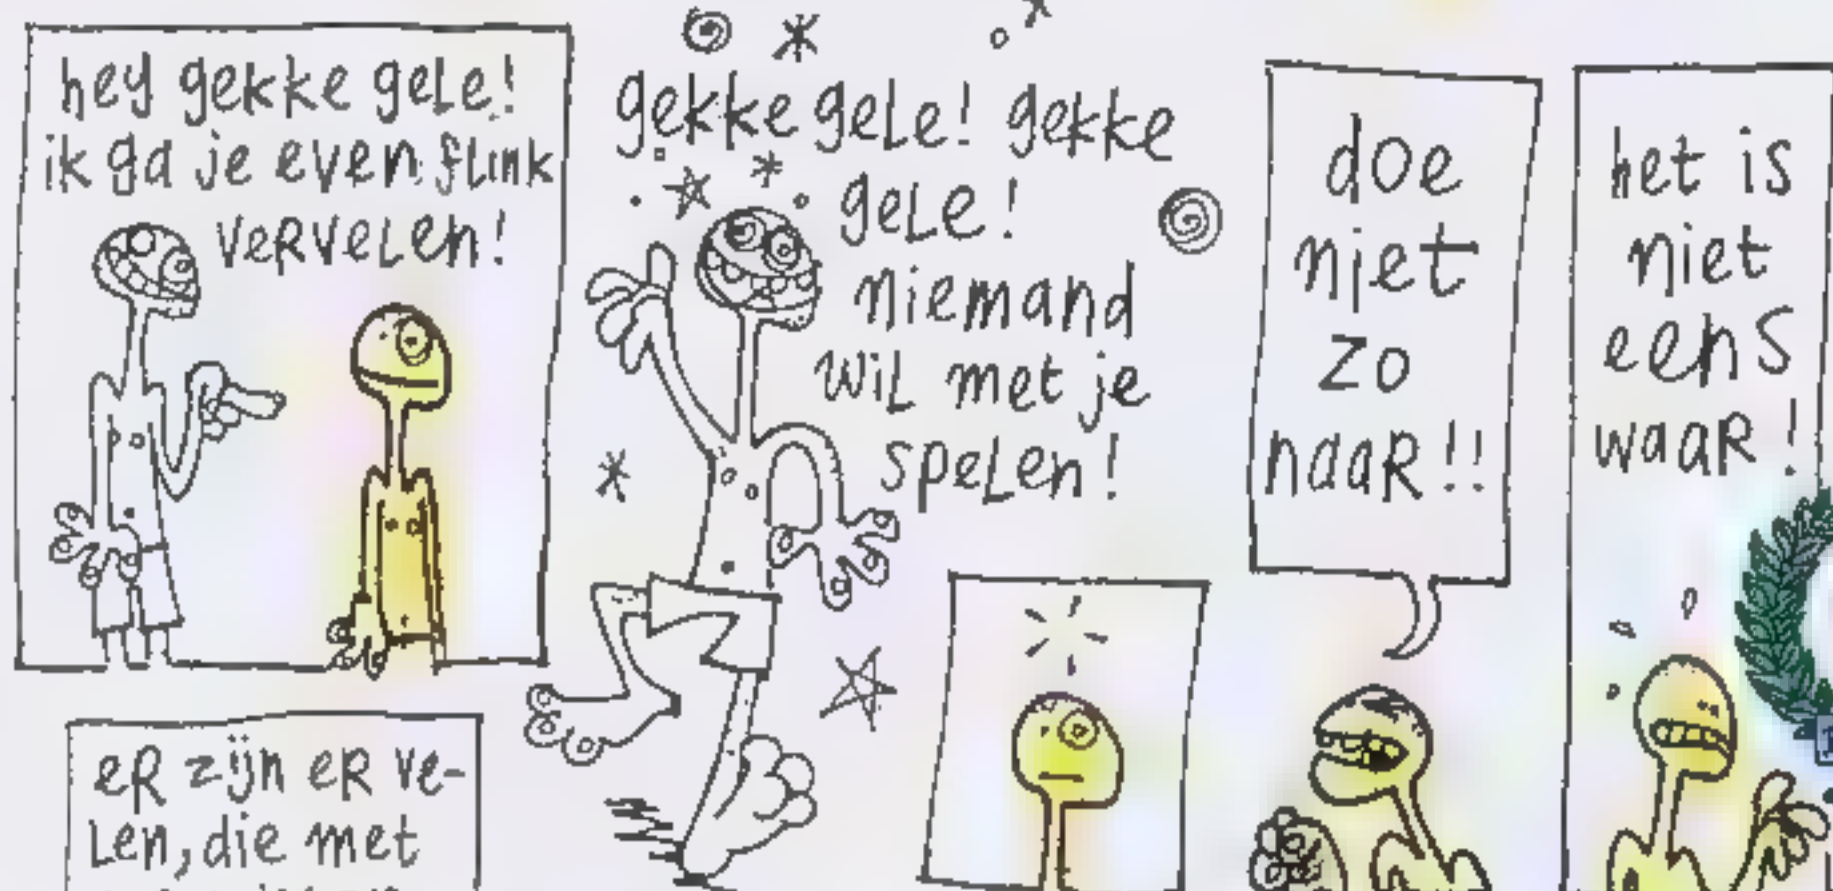 hey gekke gele!
ik ga je even flink
vervelen!
gekke gele! gekke
gele!
niemand
wil met je
spelen!
doe
niet
zo
naar!!
het is
niet
eens
waar!
er zijn er ve-
len, die met